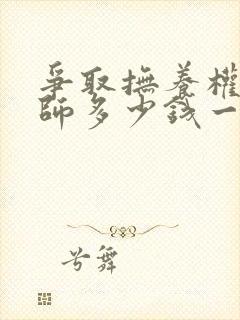 爭取撫養權
師多少錢一
兮舞